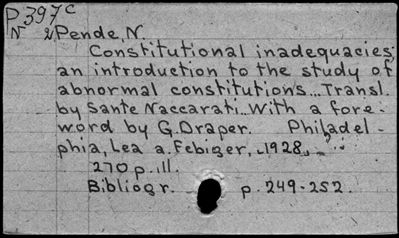 P397c
N 2
Pende, N.
Constitutional inadequacies;
an introduction to the study of
abnormal constitutions...Transl.
by Sante Naccarati..With a fore-
word by G. Draper. Philadel-
phia, Lea a. Febiger, 1928.
270 p. ill.
Bibliogr. p. 249-252.